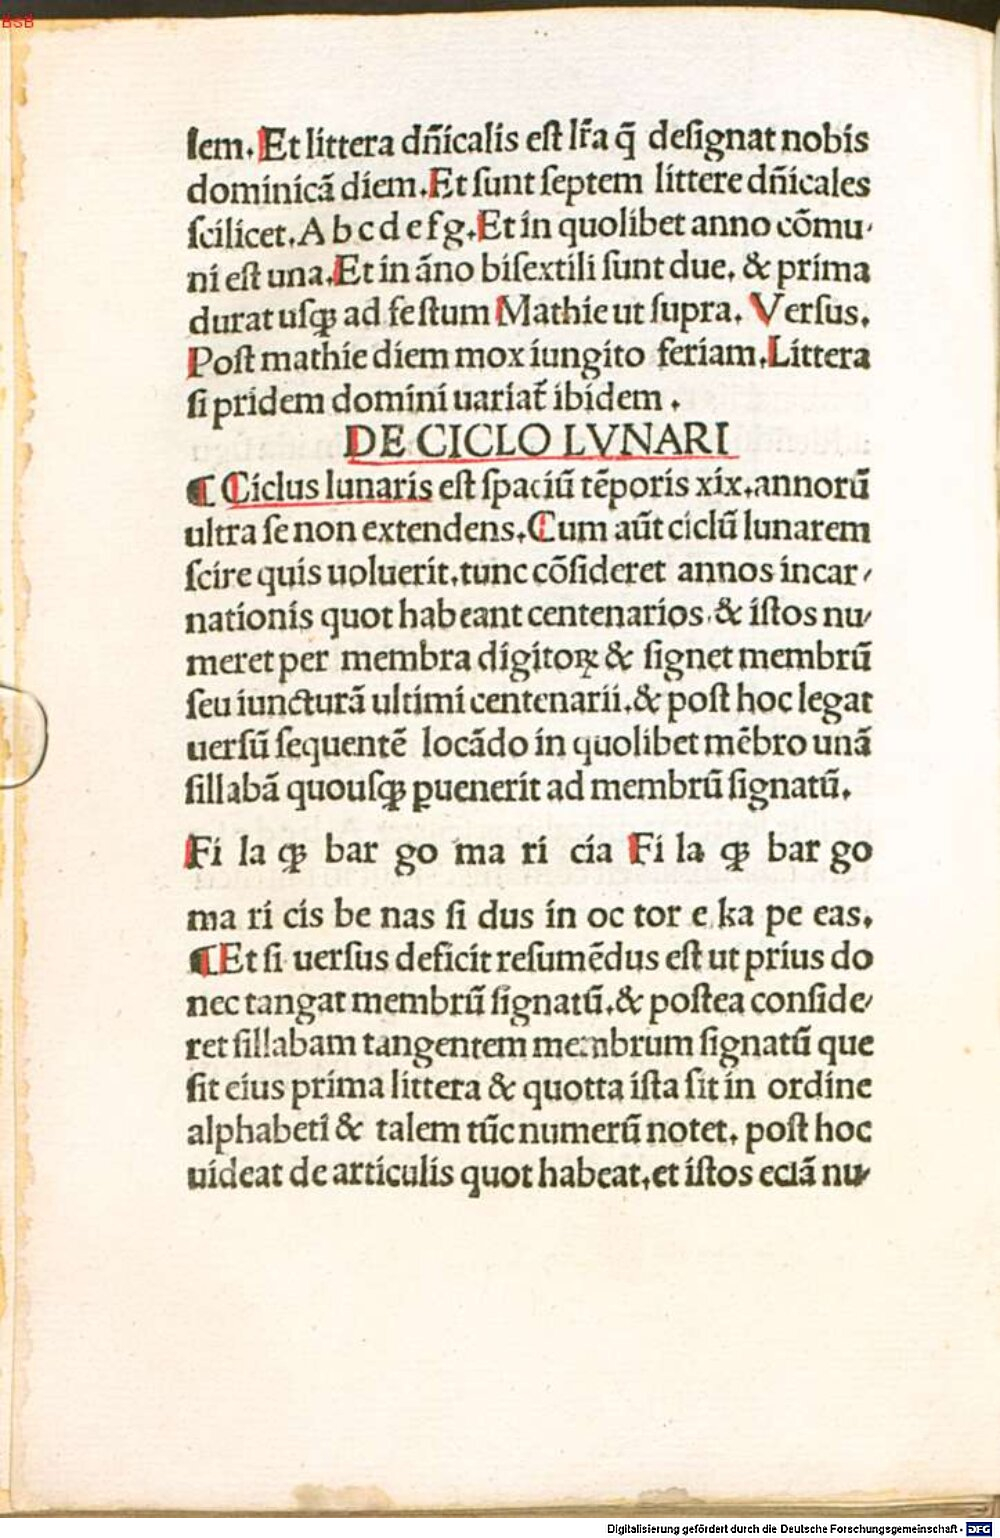 BSB
lem. Et littera dn̄icalis eſt lr̄a q̄ deſignat nobis
dominicā diem. Et ſunt ſeptem littere dn̄icales
ſcilicet. A b c d e f g. Et in quolibet anno cōmu-
ni eſt una. Et in āno biſextili ſunt due. & prima
durat uſqꝫ ad feſtum Mathie ut ſupra. Verſus.
Poſt mathie diem mox iungito feriam. Littera
ſi pridem domini uariat̄ ibidem.
DE CICLO LVNARI
¶ Ciclus lunaris eſt ſpaciū tēporis xix. annorū
ultra ſe non extendens. Cum aūt ciclū lunarem
ſcire quis uoluerit. tunc cōſideret annos incar-
nationis quot habeant centenarios. & iſtos nu-
meret per membra digitoꝝ & ſignet membrū
ſeu iuncturā ultimi centenarii. & poſt hoc legat
uerſū ſequentē locādo in quolibet mēbro unā
ſillabā quouſqꝫ ꝑuenerit ad membrū ſignatū.
Fi la qꝫ bar go ma ri cia Fi la qꝫ bar go
ma ri cis be nas ſi dus in oc tor e ka pe eas.
¶ Et ſi uerſus deficit reſumēdus eſt ut prius do
nec tangat membrū ſignatū. & poſtea conſide-
ret ſillabam tangentem membrum ſignatū que
ſit eius prima littera & quotta iſta ſit in ordine
alphabeti & talem tūc numerū notet. poſt hoc
uideat de articulis quot habeat. et iſtos eciā nu-
Digitalisierung gefördert durch die Deutsche Forschungsgemeinschaft - DFG